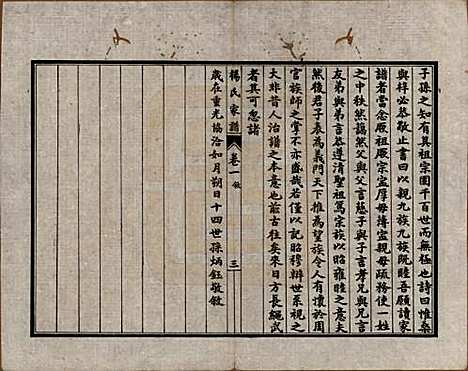 子孫之知有其祖宗園千百世而無極也詩曰惟桑
與梓必恭敬止書曰以親九族九族既睦吾願讀家
譜者當念厥祖厥宗寧厚毋摶寧親毋疏務使一姓
之中秩然藹然父與父言慈子與子言孝兄與兄言
友弟與弟言恭遵清聖祖篤宗族以昭雍睦之意夫
然後君子表為義門天下推為望族令人有懷於周
官族師之掌不亦盛哉若僅以記昭穆辨世系視之
大非昔人治譜之本意也前古往矣來日方長繩武
者其可忽諸
歲在重光協洽如月朔日十四世孫炳鈺敬敘
楊氏家譜
卷一敘
三